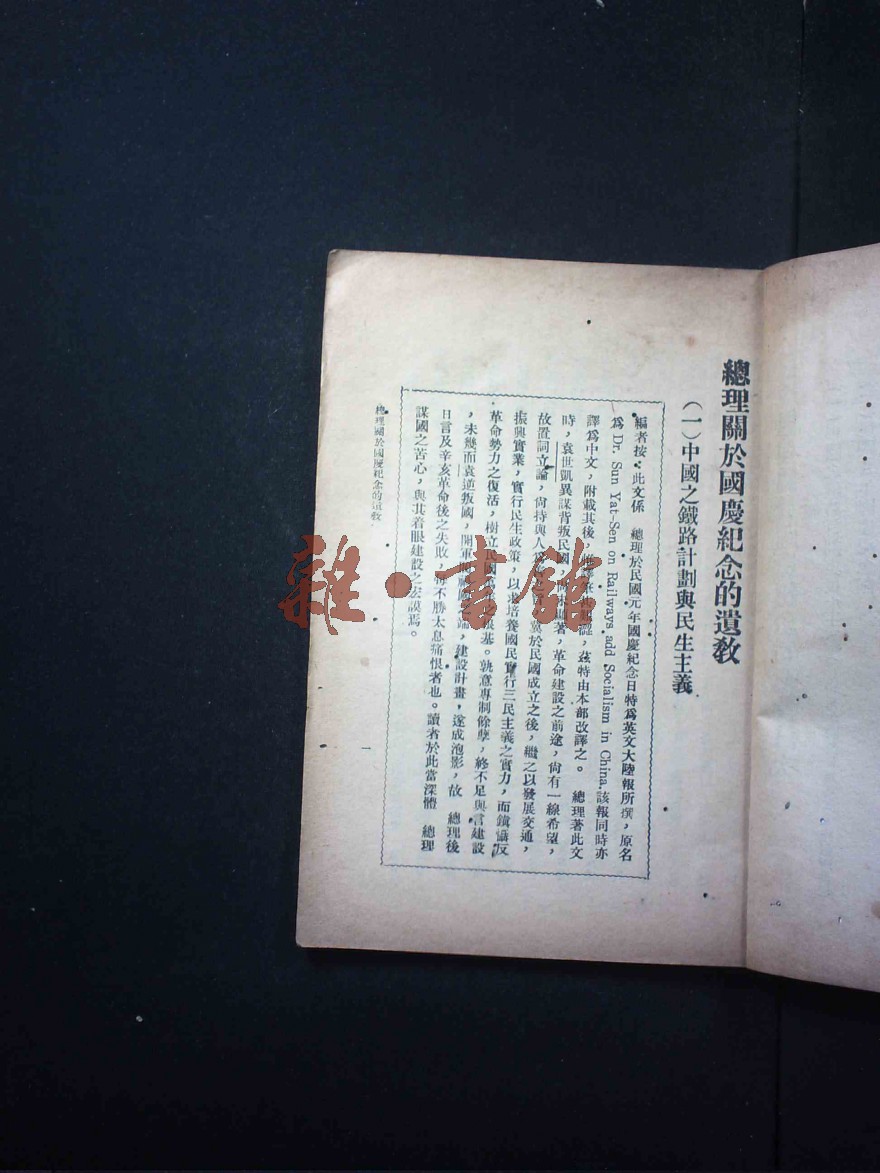 總理關於國慶紀念的遺敎
（一）中國之鐵路計劃與民生主義
編者按：此文係　總理於民國元年國慶紀念日特爲英文大陸報所撰，原名
爲 Dr. Sun Yat-Sen on Railways add Socialism in China. 該報同時亦
譯爲中文，附載其後，茲特由本部改譯之。　總理著此文
時，袁世凱異謀背叛民國，著，革命建設之前途，尙有一線希望，
故置詞立論，尙持與人爲善之冀於民國成立之後，繼之以發展交通，
振興實業，實行民生政策，以求培養國民實行三民主義之實力，而鎮懾反
革命勢力之復活，樹立民國萬根基。孰意專制餘孽，終不足與言建設
，未幾而袁逆叛國，開軍端，建設計畫，遂成泡影，故　總理後
日言及辛亥革命後之失敗，不勝太息痛恨者也。讀者於此當深體　總理
謀國之苦心，與其着眼建設之宏謨焉。
總理關於國慶紀念的遺敎
一
雜·書館